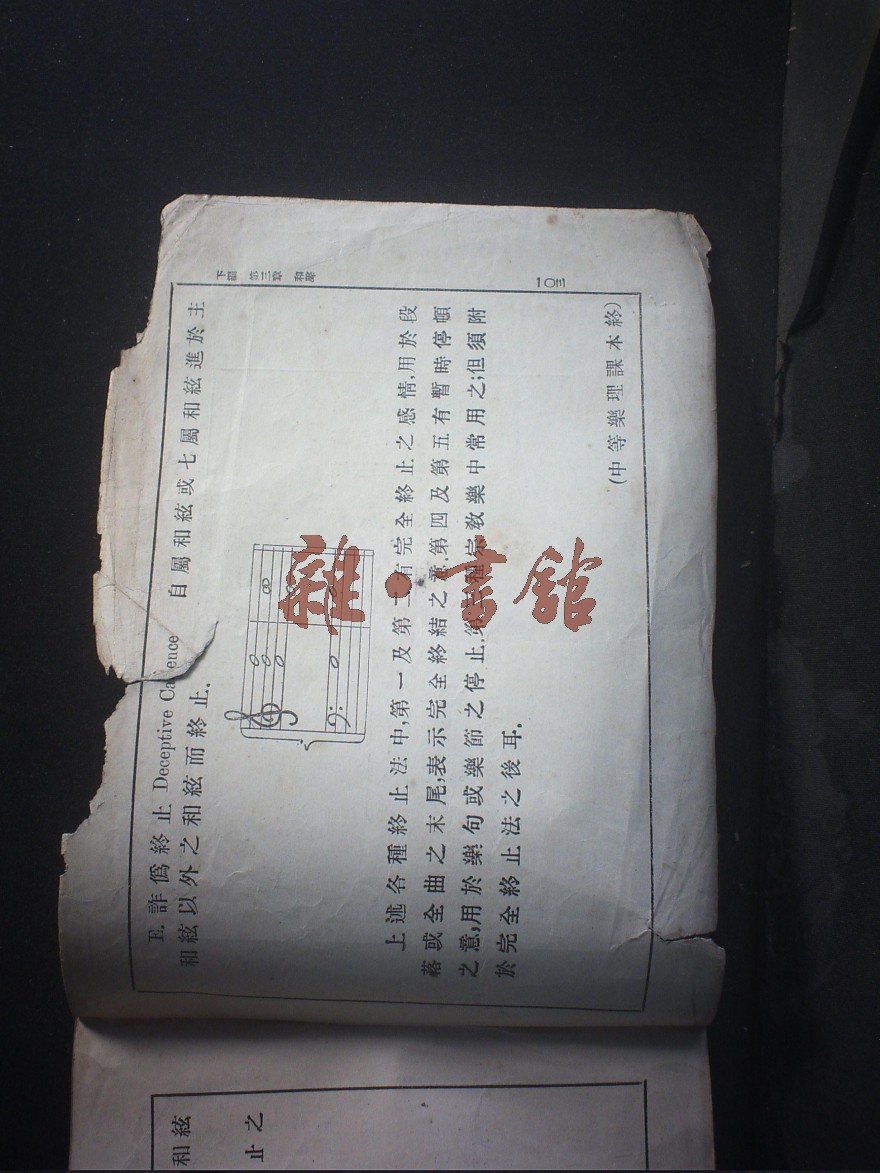 下編 第三章 和聲
一〇三
E. 詐僞終止 Deceptive Cadence 自屬和絃或七屬和絃進於主
和絃以外之和絃而終止.
上述各種終止法中,第一及第二有完全終止之感情,用於段
落或全曲之末尾,表示完全終結之意.第四及第五有暫時停頓
之意,用於樂句或樂節之停止.第三種宗教樂中常用之;但須附
於完全終止法之後耳.
(中等樂理課本終)
雜·書館
和絃
止之